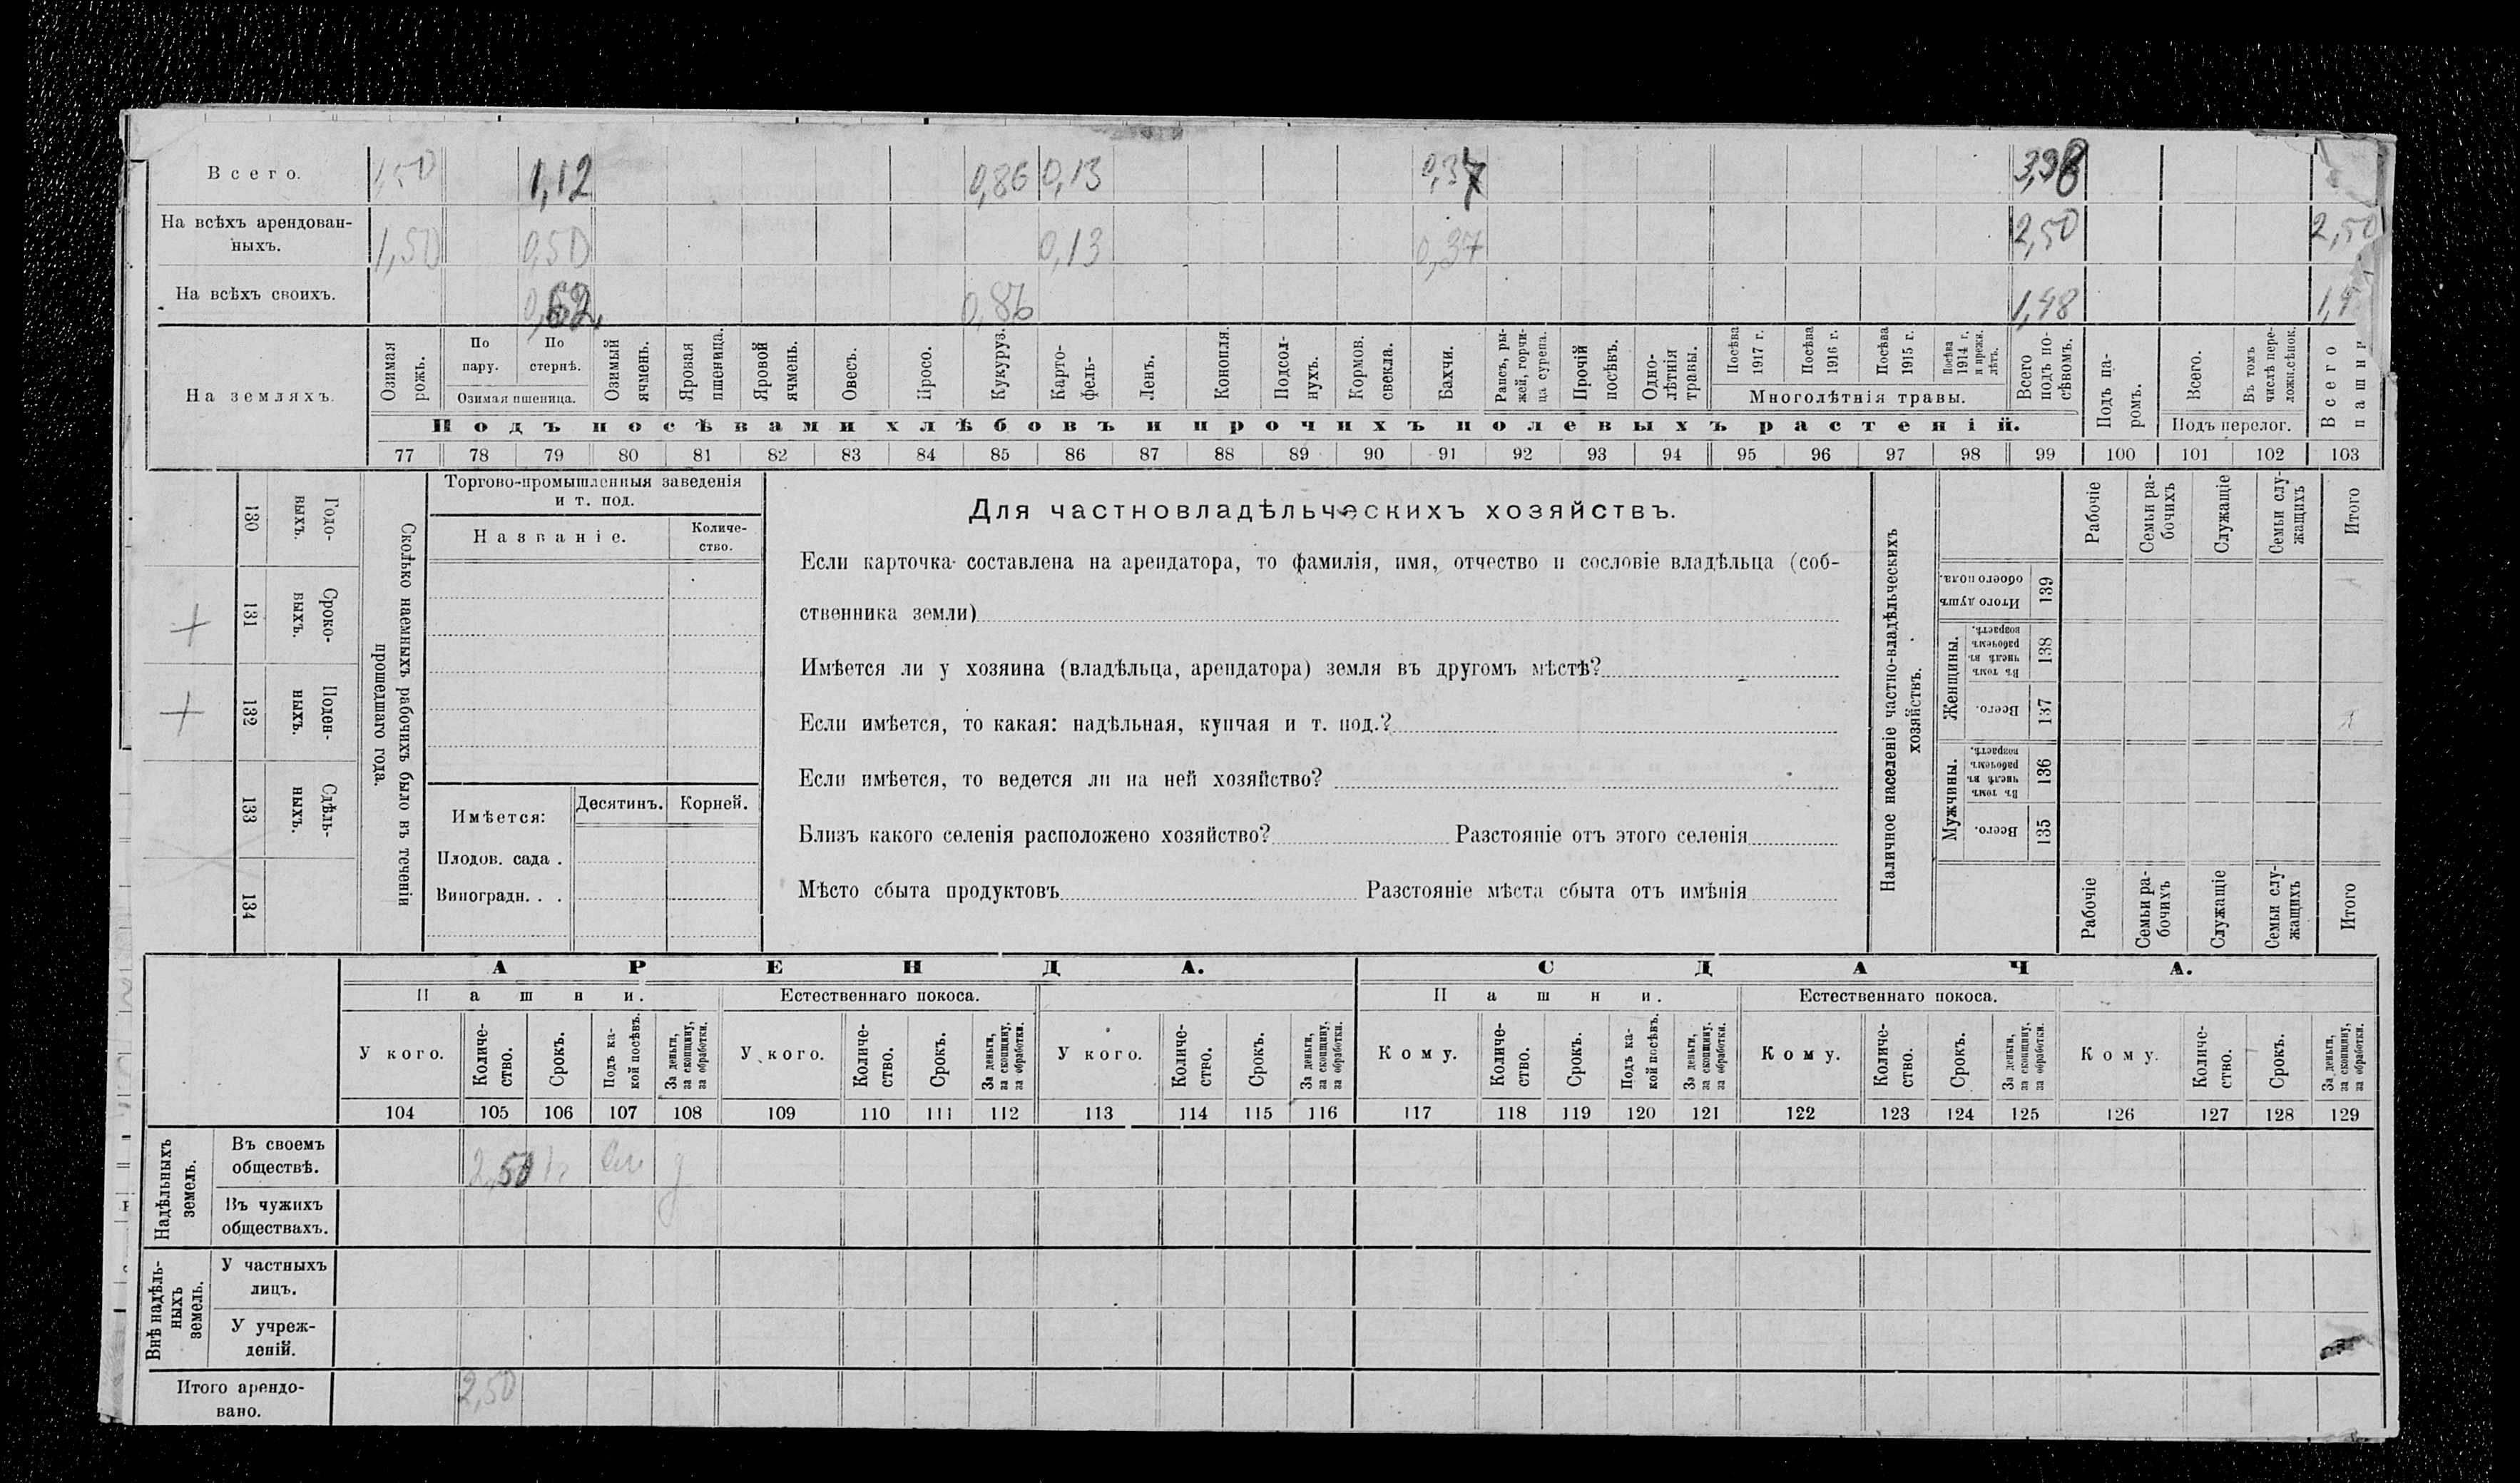 Всего. 1,50 1,12 0,86 0,13 0,37 3,98
На всѣхъ арендован-
ныхъ. 1,50 0,50 0,13 0,37 2,50 2,50
На всѣхъ своихъ. 0,62 0,86 1,48
На земляхъ.
Озимая рожь.
По пару.
По стернѣ.
Озимая пшеница.
Озимый ячмень.
Яровая пшеница.
Яровой ячмень.
Овесъ.
Просо.
Кукуруз.
Карто-
фель.
Ленъ.
Конопля.
Подсол-
нухъ.
Кормов. свекла.
Бахчи.
Рапсъ, ры-
жей, горчи-
ца сурепа.
Прочій посѣвъ.
Одно-
лѣтнія травы.
Посѣва 1917 г.
Посѣва 1916 г.
Посѣва 1915 г.
Посѣва 1914 г. и прежн. лѣтъ.
Многолѣтнія травы.
Всего подъ по-
сѣвомъ.
Подъ па-
ромъ.
Всего.
Въ томъ числѣ пере-
ложн.сѣнок.
Подъ перелог.
Всего пашни
Подъ посѣвами хлѣбовъ и прочихъ полевыхъ растеній.
77 78 79 80 81 82 83 84 85 86 87 88 89 90 91 92 93 94 95 96 97 98 99 100 101 102 103
130 Годо-
выхъ.
131 Сроко-
выхъ.
132 Поден-
ныхъ.
133 Сдѣль-
ныхъ.
134
Сколько наемныхъ рабочихъ было въ теченіи
прошедшаго года.
Торгово-промышленныя заведенія
и т. под.
Названіе.
Количе-
ство.
Имѣется: Десятинъ. Корней.
Плодов. сада .
Виноградн. . .
Для частновладѣльческихъ хозяйствъ.
Если карточка составлена на арендатора, то фамилія, имя, отчество и сословіе владѣльца (соб-
ственника земли)
Имѣется ли у хозяина (владѣльца, арендатора) земля въ другомъ мѣстѣ?
Если имѣется, то какая: надѣльная, купчая и т. под.?
Если имѣется, то ведется ли на ней хозяйство?
Близъ какого селенія расположено хозяйство? Разстояніе отъ этого селенія
Мѣсто сбыта продуктовъ Разстояніе мѣста сбыта отъ имѣнія
Наличное населеніе частно-владѣльческихъ
хозяйствъ.
Рабочіе
Семьи ра-
бочихъ
Служащіе
Семьи слу-
жащихъ
Итого
Итого душъ
обоего пола. 139
Женщины.
Въ томъ числѣ въ рабочемъ возрастѣ. 138
Всего. 137
Мужчины.
Въ томъ числѣ въ рабочемъ возрастѣ. 136
Всего. 135
Рабочіе
Семьи ра-
бочихъ
Служащіе
Семьи слу-
жащихъ
Итого
АРЕНДА. СДАЧА.
Пашни. Естественнаго покоса. Пашни. Естественнаго покоса.
У кого.
Количе-
ство.
Срокъ.
Подъ ка-
кой посѣвъ.
За деньги,
за скопщину,
за обработки.
У кого.
Количе-
ство.
Срокъ.
За деньги,
за скопщину,
за обработки.
У кого.
Количе-
ство.
Срокъ.
За деньги,
за скопщину,
за обработки.
Кому.
Количе-
ство.
Срокъ.
Подъ ка-
кой посѣвъ.
За деньги,
за скопщину,
за обработки.
Кому.
Количе-
ство.
Срокъ.
За деньги,
за скопщину,
за обработки.
Кому.
Количе-
ство.
Срокъ.
За деньги,
за скопщину,
за обработки.
104 105 106 107 108 109 110 111 112 113 114 115 116 117 118 119 120 121 122 123 124 125 126 127 128 129
Надѣльныхъ
земель.
Въ своемъ
обществѣ. 2,50
Въ чужихъ
обществахъ.
Внѣ надѣль-
ныхъ
земель.
У частныхъ
лицъ.
У учреж-
деній.
Итого арендо-
вано. 2,50